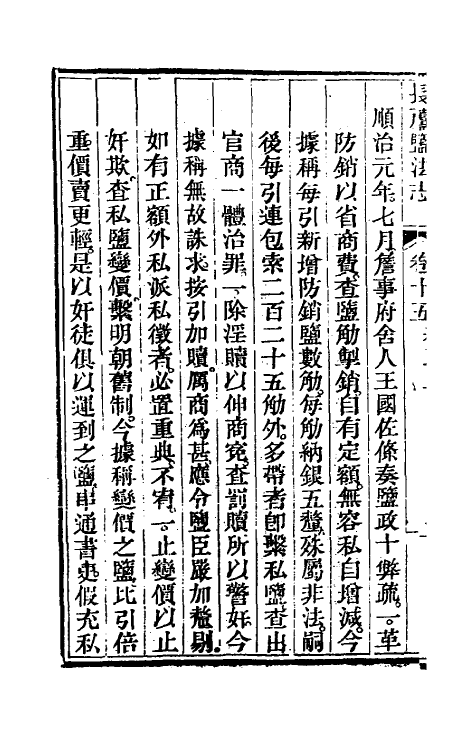 長蘆鹽法志 卷十五
順治元年七月詹事府舍人王國佐條奏鹽政十弊疏。一革
防銷以省商費。查鹽觔掣銷。自有定額。無容私自增減。今
據稱每引新增防銷鹽數觔。每觔納銀五釐。殊屬非法。嗣
後每引連包索二百二十五觔外。多帶者卽繫私鹽。查出
官商一體治罪。一除淫贖以伸商冤。查罰贖所以警奸。今
據稱無故誅求。按引加贖。厲商爲甚。應令鹽臣嚴加釐剔。
如有正額外私派私徵者。必置重典。不宥。一止變價以止
奸欺。查私鹽變價。繫明朝舊制。今據稱變價之鹽。比引倍
重。價賣更輕。是以奸徒俱以運到之鹽。串通書吏。假充私